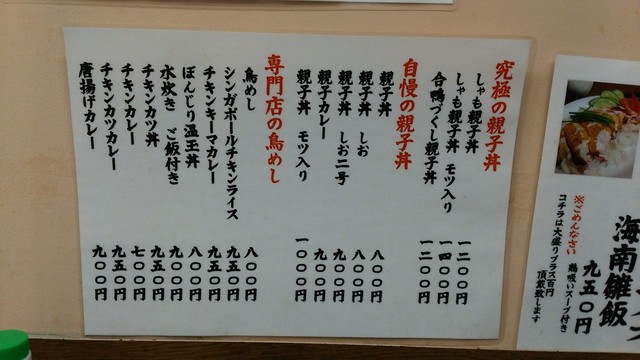 海南雞飯
九五〇円
鶏吸いスープ付き
※ごめんなさい
コチラは大盛りプラス百円
頂戴致します
究極の親子丼
しゃも親子丼 一二〇〇円
しゃも親子丼 モツ入り 一四〇〇円
合鴨づくし親子丼 一二〇〇円
自慢の親子丼
親子丼 八〇〇円
親子丼 しお 八〇〇円
親子丼 しお二号 九〇〇円
親子丼カレー 九〇〇円
親子丼 モツ入り 一〇〇〇円
専門店の鳥めし
鳥めし 八〇〇円
シンガポールチキンライス 九五〇円
チキンキーマカレー 九五〇円
ぼんじり温玉丼 八〇〇円
水炊き ご飯付き 九〇〇円
チキンカツ丼 九五〇円
チキンカレー 七〇〇円
チキンカツカレー 九五〇円
唐揚げカレー 九〇〇円